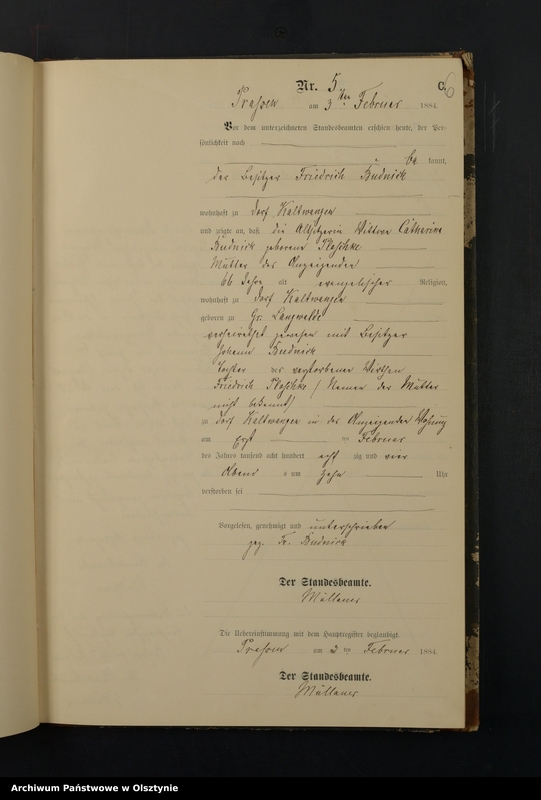 Nr. 5
C.
6
am 3ten Februar 1884.
Vor dem unterzeichneten Standesbeamten erschien heute, der Per-
sönlichkeit nach
be kannt,
der Besitzer Friedrich Budnick
wohnhaft zu Dorf Kaltwangen
und zeigte an, daß die Altsitzerin Wittwe Catharine
Budnick geborene Plaschke
Mutter des Anzeigenden
66 Jahre alt evangelischer Religion,
wohnhaft zu Dorf Kaltwangen
geboren zu Gr. Langwalde
verheirathet gewesen mit Besitzer
Johann Budnick
Tochter des verstorbenen Wirthen
Friedrich Plaschke (Namen der Mutter
nicht bekannt)
zu Dorf Kaltwangen in des Anzeigenden Wohnung
am ten Februar
des Jahres tausend acht hundert acht zig und vier
Abend s um zehn Uhr
verstorben sei
Vorgelesen, genehmigt und unterschrieben
gez. Fr. Budnick
Der Standesbeamte.
Die Uebereinstimmung mit dem Hauptregister beglaubigt.
am 3 ten Februar 1884.
Der Standesbeamte.
Archiwum Państwowe w Olsztynie